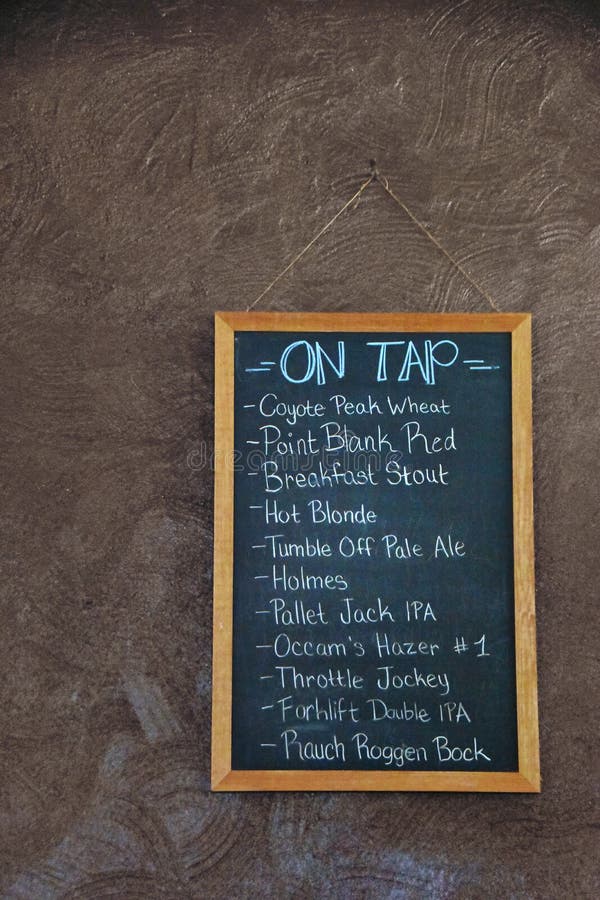 - ON TAP -
- Coyote Peak Wheat
- Point Blank Red
- Breakfast Stout
- Hot Blonde
- Tumble Off Pale Ale
- Holmes
- Pallet Jack IPA
- Occam's Hazer #1
- Throttle Jockey
- Forklift Double IPA
- Rauch Roggen Bock
dreamstime